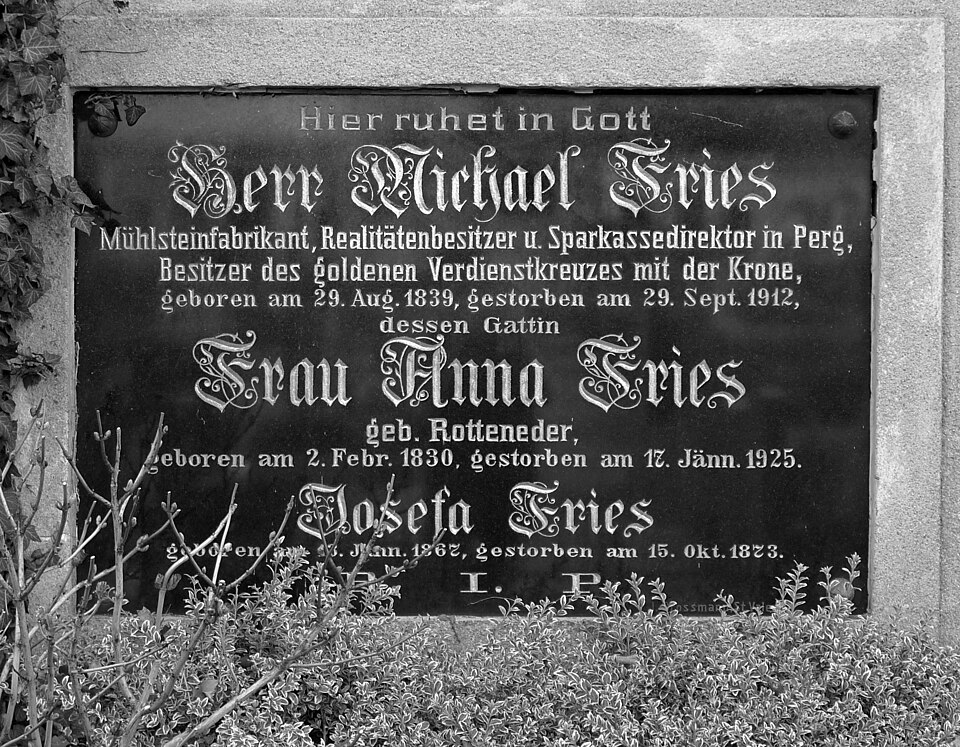 Hier ruhet in Gott
Herr Michael Fries
Mühlsteinfabrikant, Realitätenbesitzer u. Sparkassedirektor in Perg,
Besitzer des goldenen Verdienstkreuzes mit der Krone,
geboren am 29. Aug. 1839, gestorben am 29. Sept. 1912,
dessen Gattin
Frau Anna Fries
geb. Rotteneder,
geboren am 2. Febr. 1830, gestorben am 17. Jänn. 1925.
Josefa Fries
geboren am Jänn. 1867, gestorben am 15. Okt. 1873.
R. I. P.